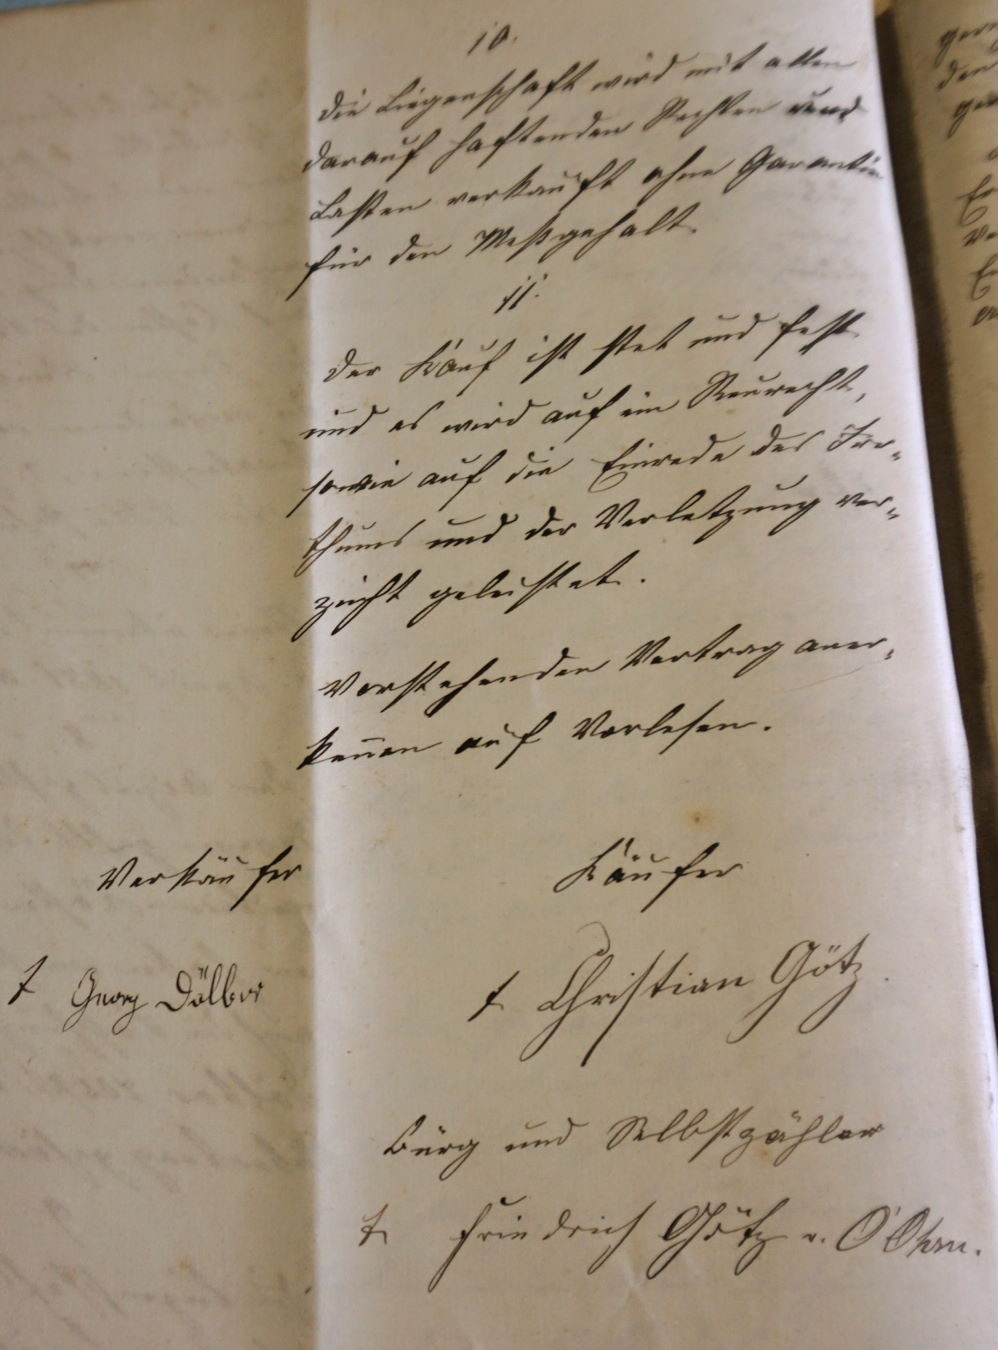 10.
Die Liegenschaft wird mit allen
darauf haftenden Rechten und
Lasten verkauft ohne Garantie
für den Meßgehalt.
11.
Der Kauf ist stet und fest
und es wird auf ein Reurecht,
sowie auf die Einrede des Irr-
thums und der Verletzung ver-
zicht geleistet.
Vorstehenden Vertrag aner-
kennen auf Vorlesen.
Verkäufer Käufer
Georg Döller Christian Götz
Bürg und Selbstzahler
Friedrich Götz v. O'Ohrn.